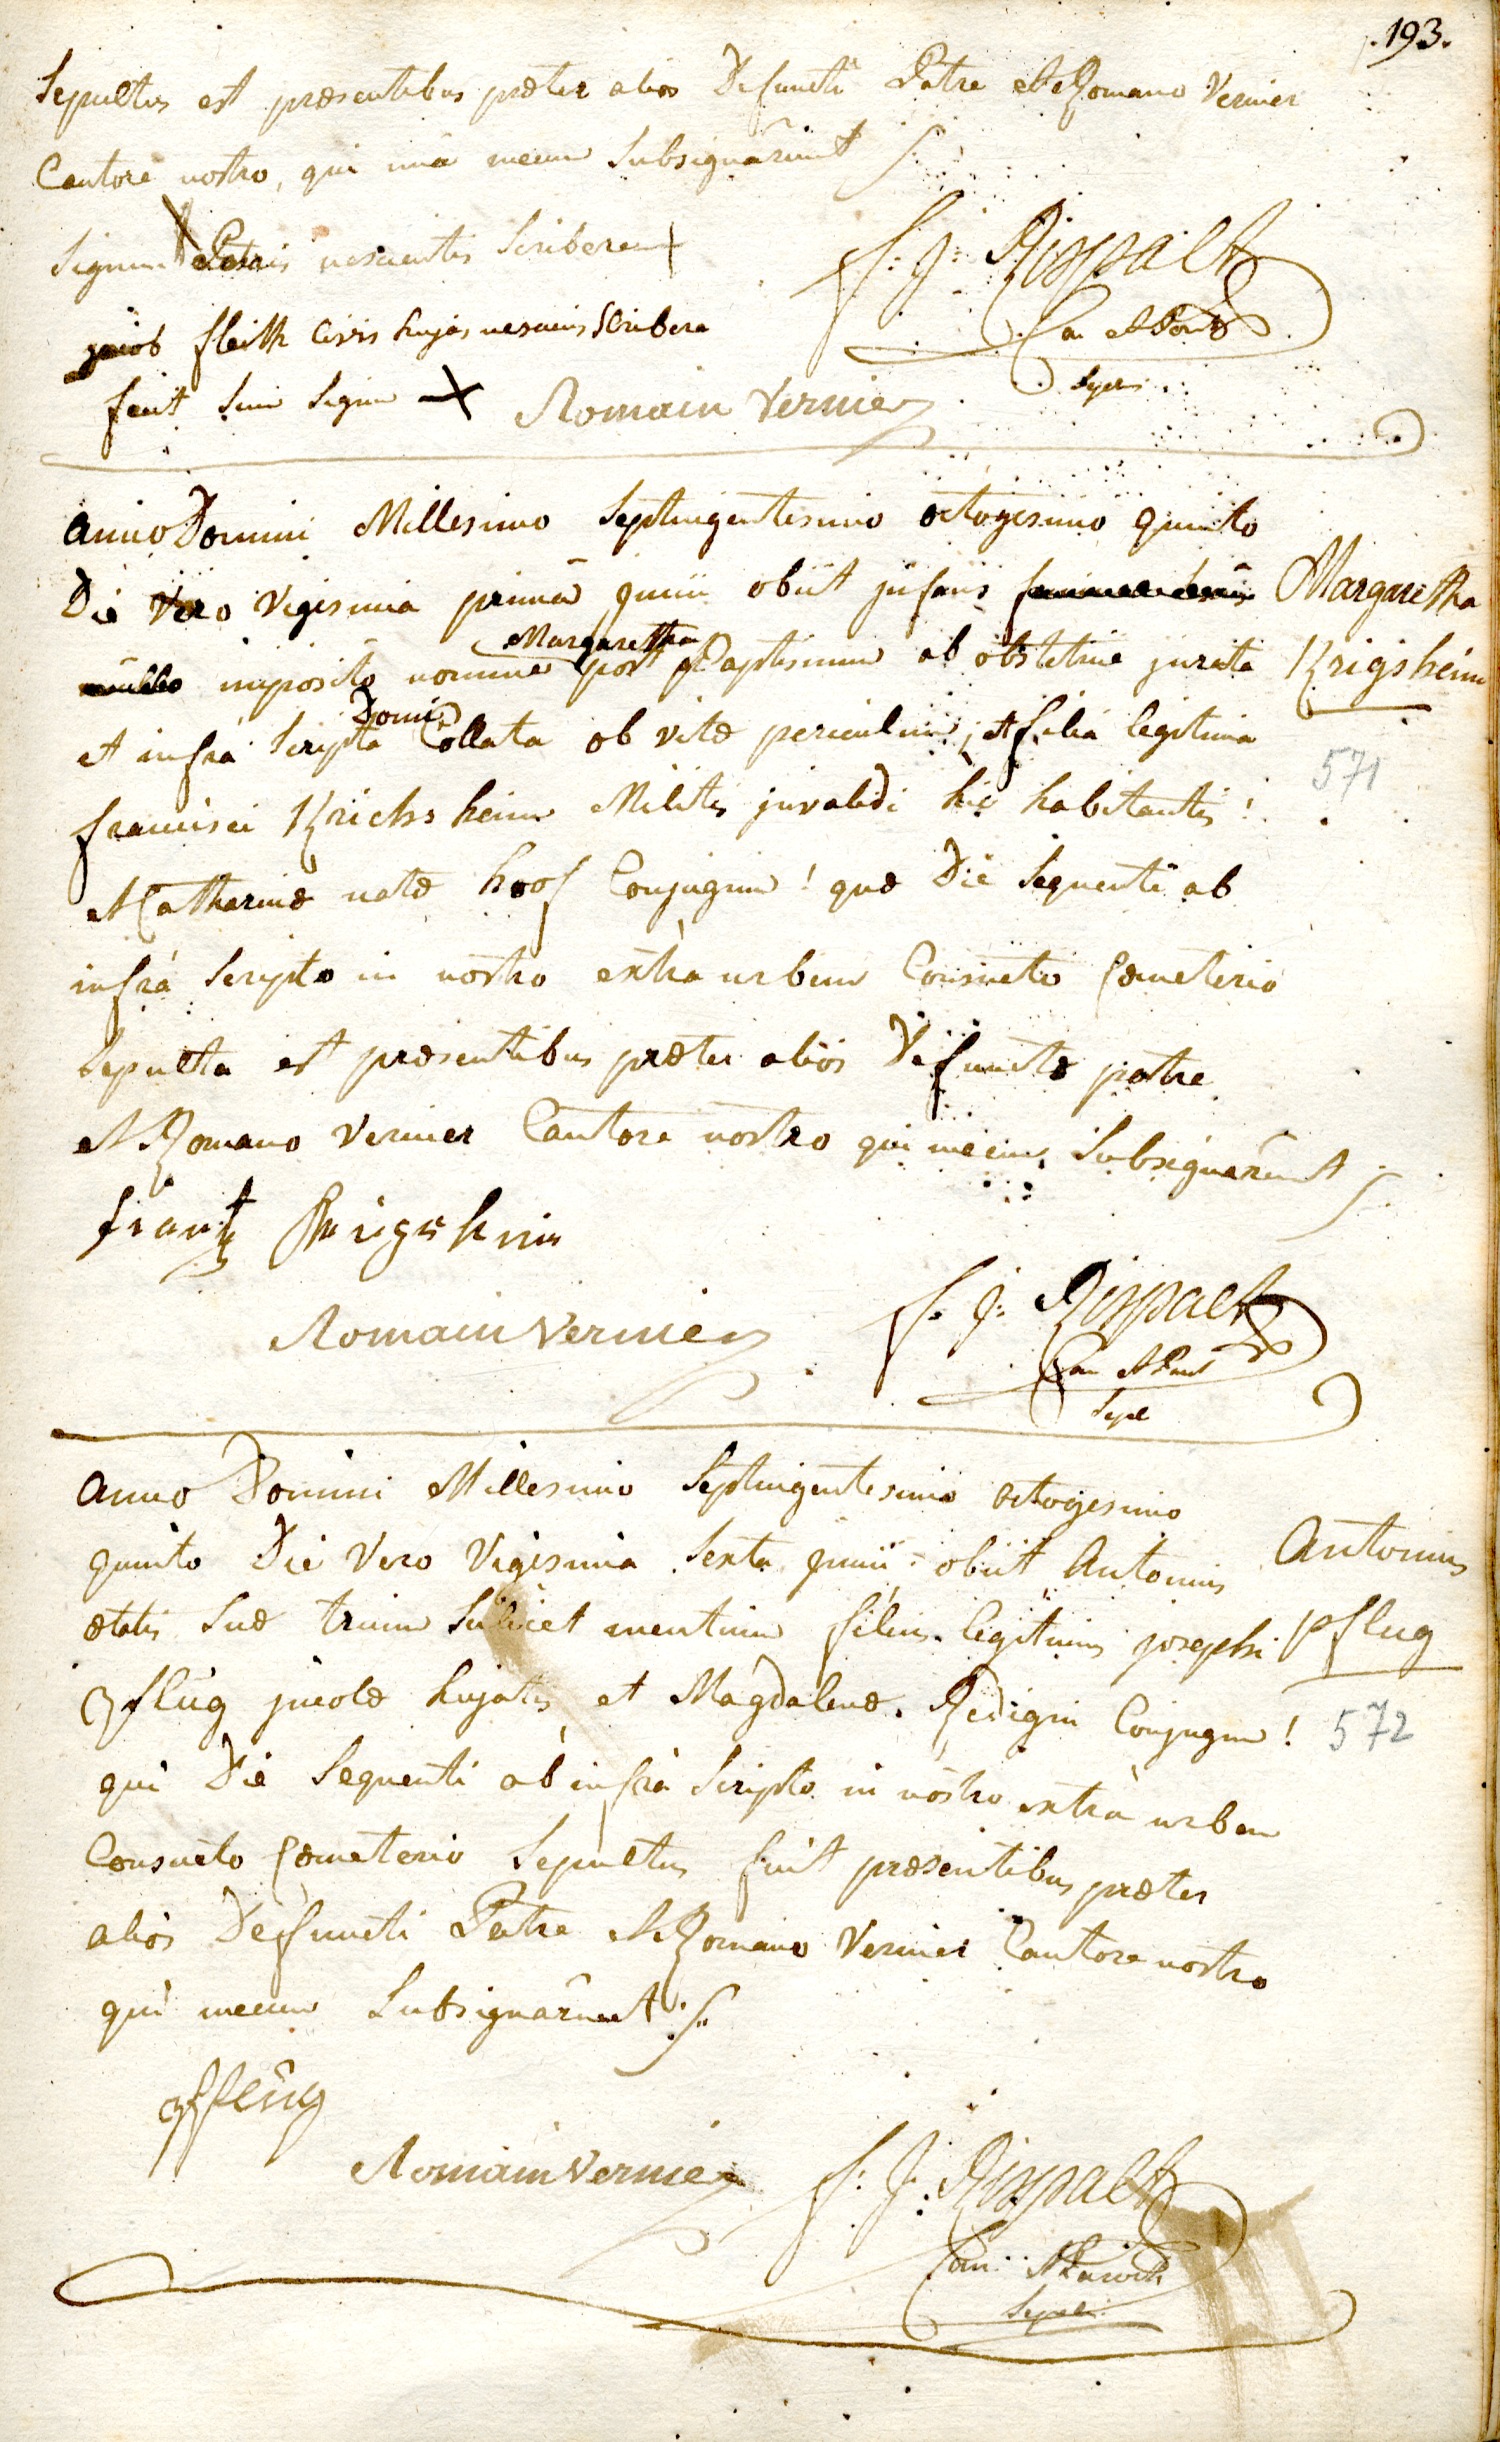 .193.
Sepultus est præsentibus præter alios Defuncti Patre et Romano Vernier
Cantore nostro, qui unà mecum Subsignârunt
Signum Patris nescientis Scribere +
jacob fleith Civis hujas nesciens Scribere
fecit Suum Signum X
Romain Vernier
f: j: Rispalt
Can et Par
Sepel
Anno Domini Millesimo Septingentesimo octogesimo quinto
Die Vero Vigesima primâ junii obiit infans
Margaretha
Krigsheim
imposito nomine Margaretha post Baptismum ab obstetrice jurata
et infrà Scripta Domi Collata ob vitæ periculum, et filia legitima
571
francisci Krichsheim Militis invalidi hic habitantis!
et Catharinæ natæ hoof Conjugum! quæ Die Sequenti ab
infrà Scripto in nostro extrà urbem Consueto Cœmeterio
Sepulta est præsentibus præter alios Defunctæ patre
et Romano Vernier Cantore nostro qui mecum Subsignârunt
frantz Krigsheim
Romain Vernier
f. j: Rispalt
Can et Par
Sepel
Anno Domini Millesimo Septingentesimo octogesimo
quinto Die Vero Vigesima Sexta junii obiit Antonius
Antonius
Pflug
ætatis Suæ trium Scilicet mensium filius legitimus josephi
pflug incolæ hujatis et Magdalenæ Redigin Conjugum!
572
qui Die Sequenti ab infrà Scripto in nostro extrà urbem
Consueto Cœmeterio Sepultus fuit præsentibus præter
alios Defuncti Patre et Romano Vernier Cantore nostro
qui mecum Subsignârunt
pflug
Romain Vernier
f: J: Rispalt
Can: et Paroch
Sepel: